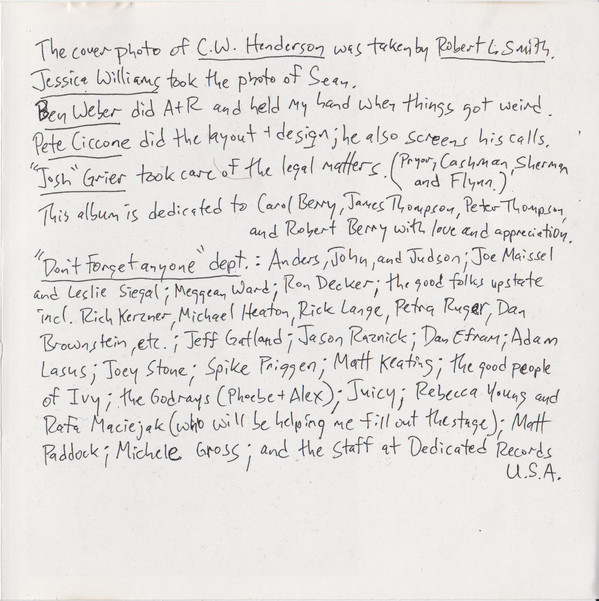 The cover photo of C.W. Henderson was taken by Robert L. Smith.
Jessica Williams took the photo of Sean.
Ben Weber did A+R and held my hand when things got weird.
Pete Ciccone did the layout + design; he also screens his calls.
"Josh" Grier took care of the legal matters. (Pryor, Cashman, Sherman
and Flynn.)
This album is dedicated to Carol Berry, James Thompson, Peter Thompson,
and Robert Berry with love and appreciation.
"Don't forget anyone" dept.: Anders, John, and Judson; Joe Maissel
and Leslie Siegal; Meggean Ward; Ron Decker; the good folks upstate
incl. Rich Kerzner, Michael Heaton, Rick Lange, Petra Ruger, Dan
Brownstein, etc.; Jeff Gatland; Jason Raznick; Dan Efram; Adam
Lasus; Joey Stone; Spike Priggen; Matt Keating; the good people
of Ivy; the Godrays (Phoebe + Alex); Juicy; Rebecca Young and
Rafa Maciejak (who will be helping me fill out the stage); Matt
Paddock; Michele Gross; and the staff at Dedicated Records
U.S.A.